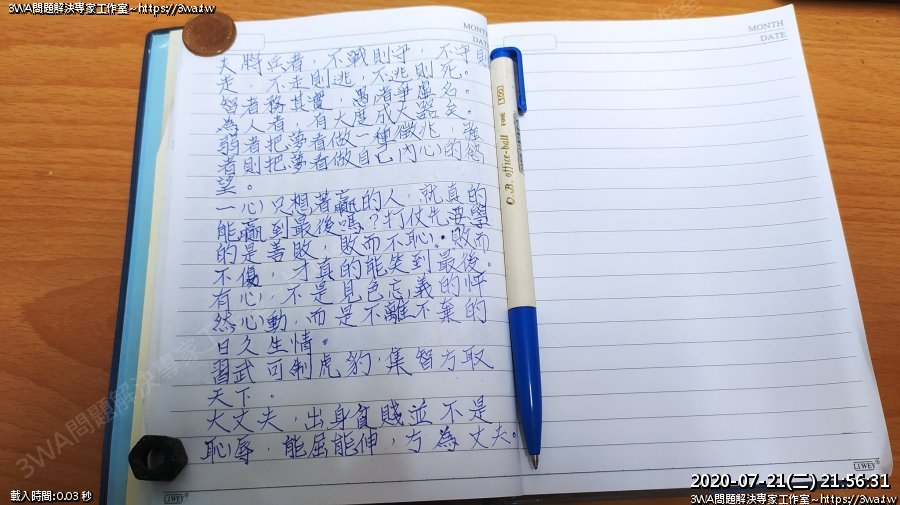 3WA問題解決專家工作室~https://3wa.tw
3WA問題解決專家工作室
MONTH
DATE
夫將兵者，不戰則守，不守則
走，不走則逃，不逃則死。
智者務其實，愚者爭虛名。
為人者，有大度成大器矣。
弱者把夢看做一種徵兆，強
者則把夢看做自己內心的慾
望。
一心只想著贏的人，就真的
能贏到最後嗎？打仗先要學
的是善敗，敗而不恥，敗而
不傷，才真的能笑到最後。
有心，不是見色忘義的怦
然心動，而是不離不棄的
日久生情。
習武可制虎豹，集智方取
天下。
大丈夫，出身貧賤並不是
恥辱，能屈能伸，方為丈夫。
1WEY
O.B. office-ball
FINE
100
MONTH
DATE
1WEY
3WA問題解決專家工作室
載入時間:0.03 秒
2020-07-21(二) 21:56:31
3WA問題解決專家工作室~https://3wa.tw